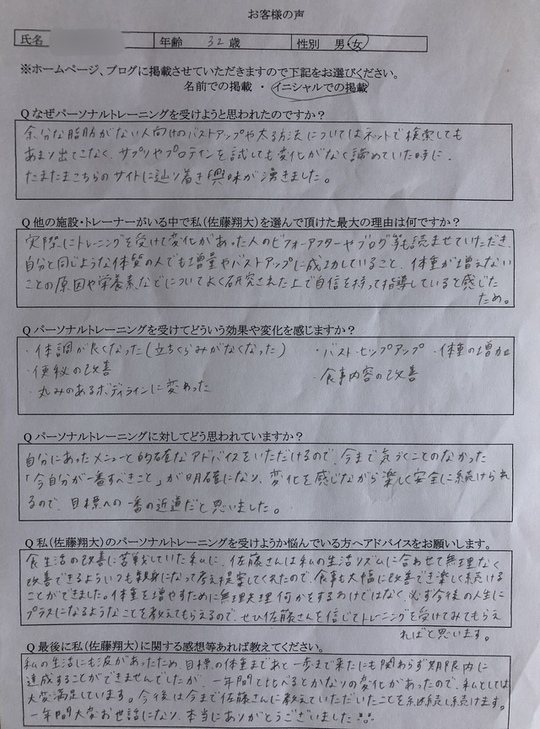 お客様の声
氏名 年齢 32 歳 性別 男 女
※ホームページ、ブログに掲載させていただきますので下記をお選びください。
名前での掲載 ・ イニシャルでの掲載
Q なぜパーソナルトレーニングを受けようと思われたのですか？
余分な脂肪がない人向けのバストアップや太る方法についてはネットで検索しても
あまり出てこなく、サプリやプロテインを試しても変化がなく諦めていた時に、
たまたまこちらのサイトに辿り着き興味が湧きました。
Q 他の施設・トレーナーがいる中で私(佐藤翔太)を選んで頂けた最大の理由は何ですか？
実際にトレーニングを受けて変化があった人のビフォーアフターやブログ等も読ませていただき、
自分と同じような体質の人でも増量やバストアップに成功していること、体重が増えない
ことの原因や栄養素などについてよく研究された上で自信を持って指導していると感じた
ため。
Q パーソナルトレーニングを受けてどういう効果や変化を感じますか？
・体調が良くなった(立ちくらみがなくなった) ・バスト・ヒップアップ ・体重の増加
・便秘の改善 ・食事内容の改善
・丸みのあるボディラインに変わった
Q パーソナルトレーニングに対してどう思われていますか？
自分にあったメニューと的確なアドバイスをいただけるので、今まで気づくことのなかった
「今自分が一番すべきこと」が明確になり、変化を感じながら楽しく安全に続けられ
るので、目標への一番の近道だと思いました。
Q 私(佐藤翔太)のパーソナルトレーニングを受けようか悩んでいる方へアドバイスをお願いします。
食生活の改善に苦戦していた私に、佐藤さんは私の生活リズムに合わせて無理なく
改善できるよういつも親身になって考え提案してくれたので、食事も大幅に改善でき楽しく続ける
ことができました。体重を増やすために無理矢理何かをするわけではなく、必ず今後の人生に
プラスになるようなことを教えてもらえるので、ぜひ佐藤さんを信じてトレーニングを受けてみてもらえ
ればと思います。
Q 最後に私(佐藤翔太)に関する感想等あれば教えてください。
私の生活にも波があったため、目標の体重まであと一歩まで来たにも関わらず期限内に
達成することができませんでしたが、一年間で比べるとかなりの変化があったので、私としては
大変満足しています。今後は今まで佐藤さんに教えていただいたことを継続し続けます。
一年間大変お世話になり、本当にありがとうございました!!